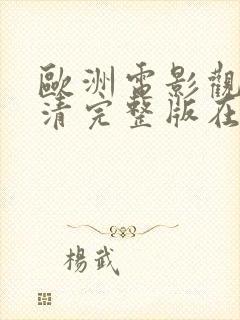 歐洲電影觀
清完整版在
楊武